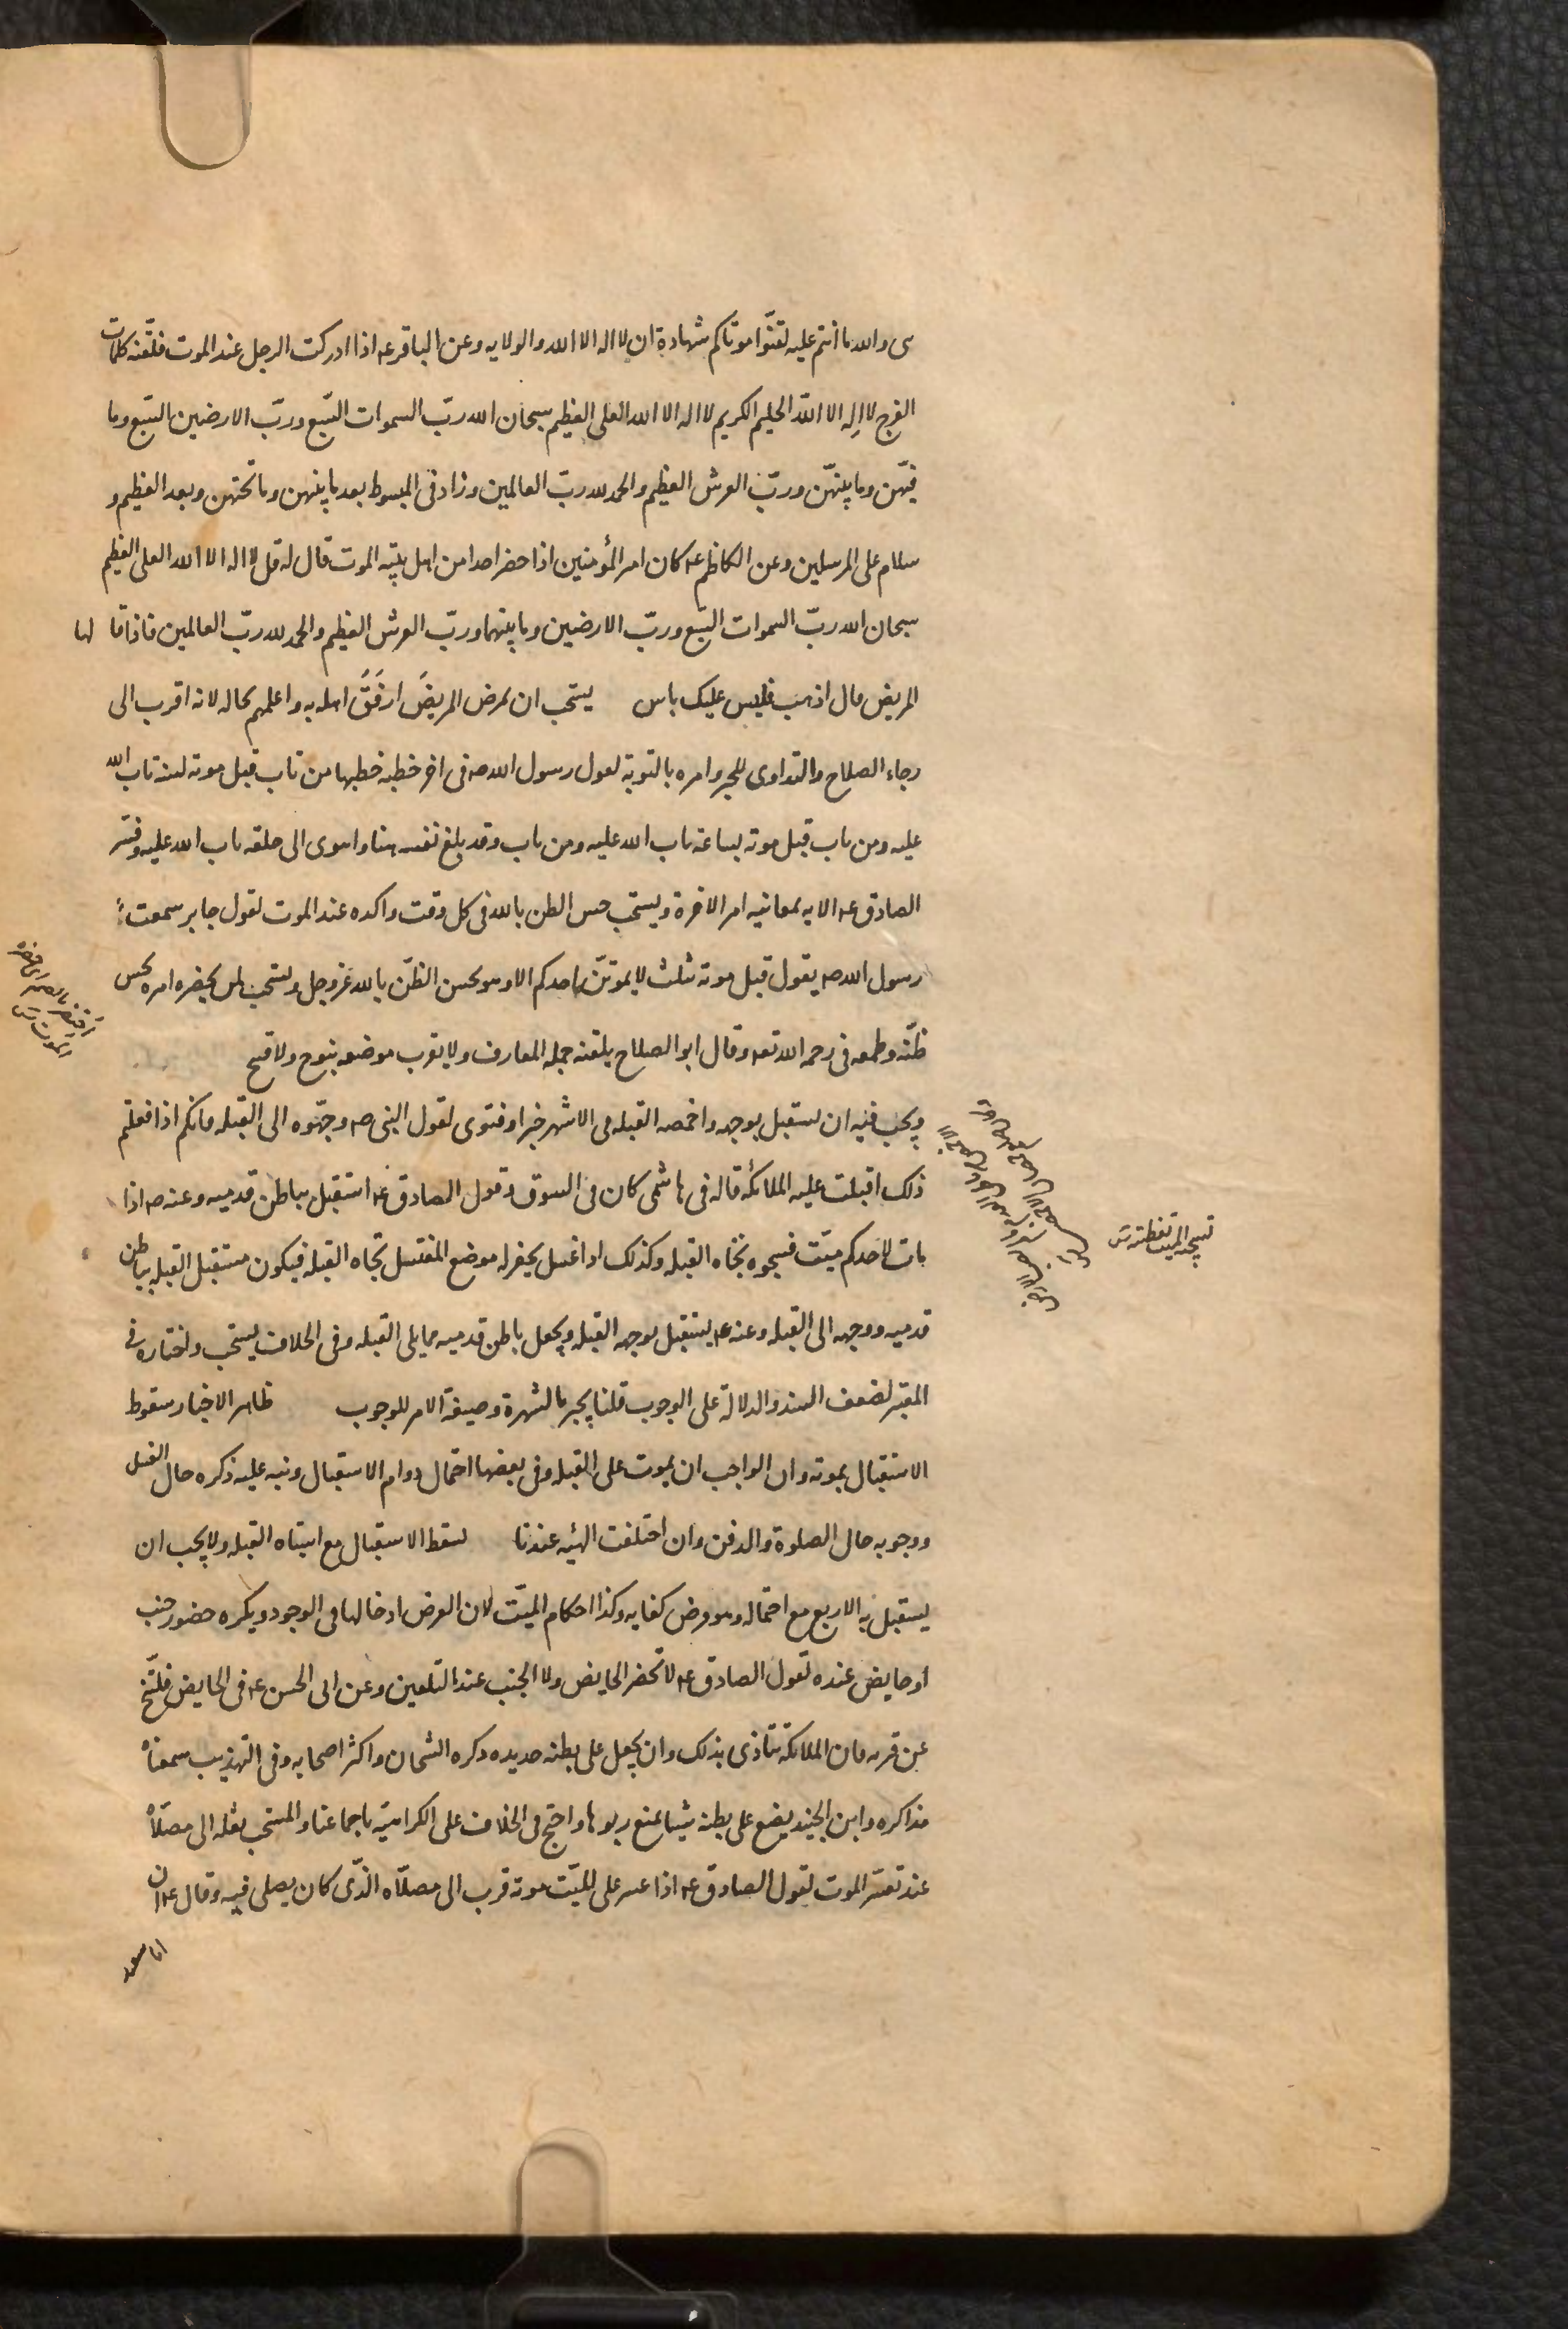 سى والله ما انتم عليه لقنوا موتاكم شهادة ان لا اله الا الله والولايه وعن الباقر عه اذا ادركت الرجل عند الموت فلقنه كلمات
الفرج لا اله الا الله الحليم الكريم لا اله الا الله العلى العظيم سبحان الله ربّ السموات السّبع وربّ الارضين السّبع وما
فيهّن وما بينهّن وربّ العرش العظيم والحمد لله ربّ العالمين وزاد فى المبسوط بعد ما بينهن وما تحتهن وبعد العظيم و
سلام على المرسلين وعن الكاظم عه كان امير المؤمنين اذا حضر احدا من اهل بيته الموت قال له قل لا اله الا الله العلى العظيم
سبحان الله ربّ السموات السّبع وربّ الارضين وما بينهما وربّ العرش العظيم والحمد لله ربّ العالمين فاذا قا لها
المريض قال اذهب فليس عليك باس يستحب ان يمرض المريضَ ارفَقُ اهله به واعلمهم بحاله لانه اقرب الى
رجاء الصلاح والتداوى للخبر وامره بالتوبة لقول رسول الله صه فى اخر خطبه خطبها من تاب قبل موته لسنه تاب الله
عليه ومن تاب قبل موته بساعة تاب الله عليه ومن تاب وقد بلغ نفسه هنا واهوى الى حلقه تاب الله عليه وفسّر
الصادق عه الايه بمعاينه امر الاخرة ويستحب حسن الظن بالله فى كل وقت واكده عند الموت لقول جابر سمعت
رسول الله صه يقول قبل موته بثلث لا يموتنّ احدكم الا وهو يحسن الظنّ بالله عز وجل ويستحب لمن يحضره امره بحسن
ظنّه وطمعه فى رحمه الله تعه وقال ابو الصلاح يلقنه جمله المعارف ولا يقرب موضعه بنوح ولا قبح
ويجب فيه ان يستقبل بوجهه واخمصه القبله فى الاشهر خبرا وفتوى لقول النبى صه وجّهوه الى القبله فانكم اذا فعلتم
ذلك اقبلت عليه الملائكه قاله فى هاشمى كان فى السوق وقول الصادق عه استقبل بباطن قدميه وعنه صه اذا
مات لاحدكم ميّت فسجوه تجاه القبله وكذلك اذا غسل يحفر له موضع المغتسل تجاه القبله فيكون مستقبل القبله بباطن
قدميه ووجهه الى القبله وعنه عه يستقبل بوجهه القبله ويجعل باطن قدميه مما يلى القبله وفى الخلاف يستحب واختاره فى
المعتبر لضعف السند والدلالة على الوجوب قلنا يجبر بالشهرة وصيغة الامر للوجوب ظاهر الاخبار سقوط
الاستقبال بموته وان الواجب ان يموت على القبله وفى بعضها احتمال دوام الاستقبال ونبه عليه ذكره حال الغسل
ووجوبه حال الصلوة والدفن وان اختلفت الهيئه عندنا يسقط الاستقبال مع اشتباه القبله ولا يجب ان
يستقبل به الاربع مع احتماله وهو فرض كفايه وكذا احكام الميّت لان الغرض ادخالها فى الوجود ويكره حضور جنب
او حايض عنده لقول الصادق عه لا تحضر الحايض ولا الجنب عند التلقين وعن ابى الحسن عه فى الحايض فلتنحّ
عن قربه فان الملائكة تتاذى بذلك وان يجعل على بطنه حديده ذكره الشيخان واكثر اصحابه وفى التهذيب سمعناه
مذاكره وابن الجنيد يضع على بطنه شيئا يمنع ربوها واحتج فى الخلاف على الكراهية باجماعنا والمستحب نقله الى مصلّاه
عند تعسّر الموت لقول الصادق عه اذا عسر على الميّت موته قرب الى مصلّاه الذّى كان يصلى فيه وقال عه ان
ابا سعيد
تسجية الميت تغطيته